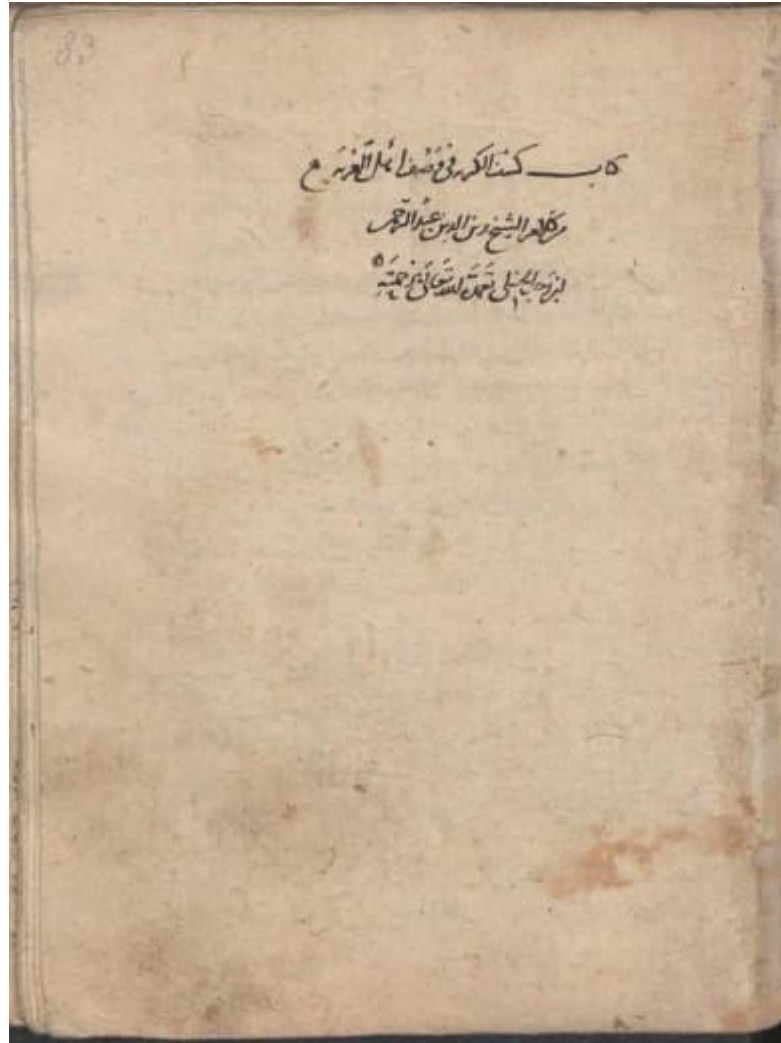 83
كتاب كشف الكربة في وصف أهل الغربة
من كلام الشيخ زين الدين عبد الرحمن
ابن رجب الحنبلي تغمده الله تعالى برحمته